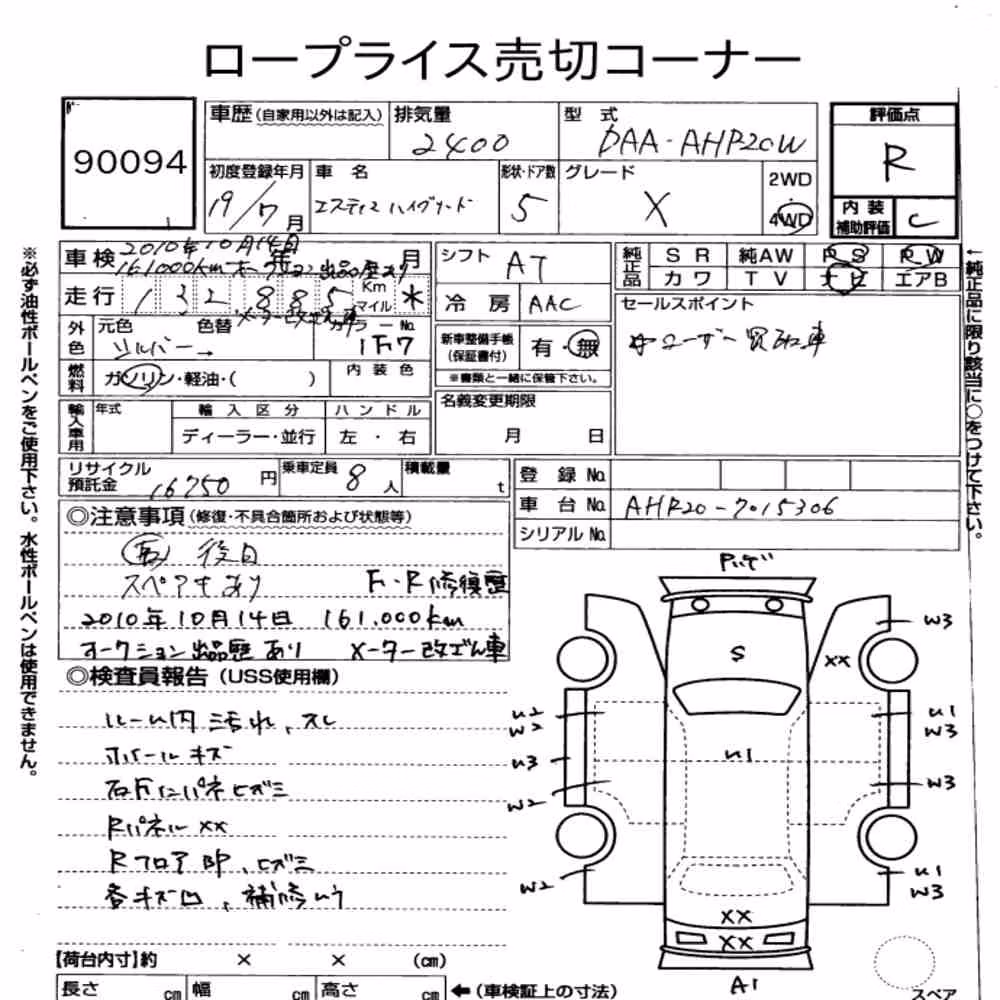 ロープライス売切コーナー
90094
車歴(自家用以外は記入)
排気量 2400
型式 DAA-AHR20W
評価点 R
初度登録年月 19/7月
車名 エスティマ ハイブリッド
形状・ドア数 5
グレード X
2WD
4WD
内装補助評価 C
車検 年 月
2010年10月14日
161.000km オークション出品歴あり
走行 132885 Km マイル *
メーター改ざん車
外色 元色 シルバー→ 色替 カラーNo. 1F7
燃料 ガソリン・軽油・( )
内装色
輸入車用 年式
輸入区分 ディーラー・並行
ハンドル 左・右
シフト AT
冷房 AAC
新車整備手帳(保証書付) 有・無
※書類と一緒に保管下さい。
名義変更期限
月 日
純正品 SR 純AW PS PW
カワ TV ナビ エアB
セールスポイント
ユーザー買取車
リサイクル預託金 16750円
乗車定員 8人
積載量 t
登録No.
車台No. AHR20-7015306
シリアルNo.
◎注意事項(修復・不具合箇所および状態等)
後日
スペアキあり F・R修復歴
2010年10月14日 161.000km
オークション出品歴あり メーター改ざん車
◎検査員報告(USS使用欄)
ルーム内汚れ、スレ
ホイールキズ
Rパネル XX
Rフロア部、ヒズミ
各キズ凹、補修
W3
S
XX
U2
W2
U1
W3
U3
U1
W2
W3
W2
U1
W3
XX
XX
A1
スペア
【荷台内寸】約 × × (cm)
長さ cm 幅 cm 高さ cm
←(車検証上の寸法)
※必ず油性ボールペンをご使用下さい。水性ボールペンは使用できません。
←純正品に限り該当に○をつけて下さい。